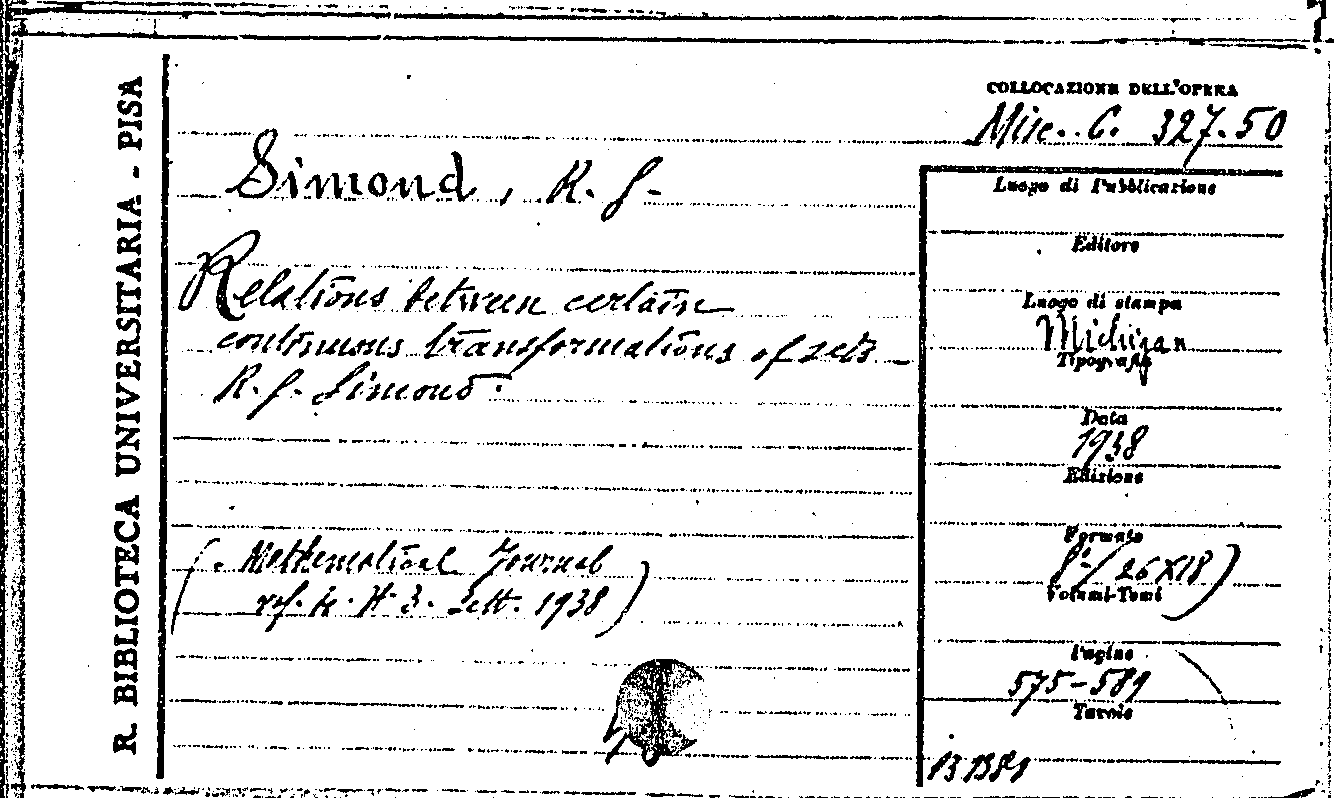 R. BIBLIOTECA UNIVERSITARIA - PISA
COLLOCAZIONE DELL'OPERA
Misc. C. 327.50
Simond, R. G.
Relations between certain
continuous transformations of sets -
R. G. Simond.
(. Mathematical Journal
vol. 4. N 3. Sett. 1938)
Luogo di Pubblicazione
Editore
Luogo di stampa
Michigan
Tipografia
Data
1938
Edizione
Formato
8° (26X18)
Volumi-Tomi
Pagine
575-589
Tavole